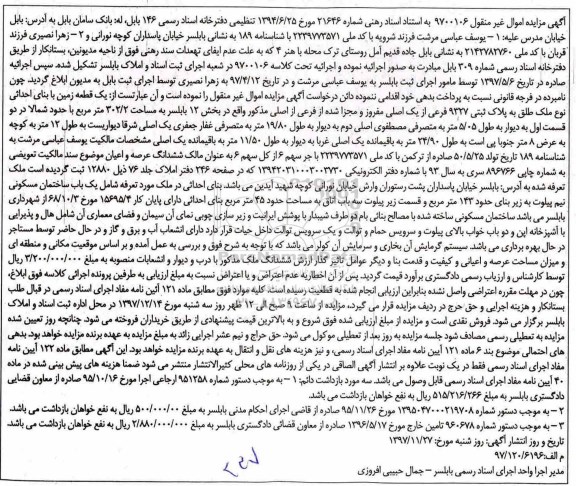 آگهی مزایده اموال غیر منقول ۹۷۰۰۱۰۶ به استناد اسناد رهنی شماره ۲۱۶۴۶ مورخ ۱۳۹۴/۶/۲۵ تنظیمی دفترخانه اسناد رسمی ۱۴۶ بابل، له: بانک سامان بابل به آدرس: بابل
خیابان مدرس علیه: ۱ – یوسف عباسی مرشت فرزند شرویه با کد ملی ۲۲۳۹۷۷۳۵۷۱ با شناسنامه ۱۸۹ به نشانی بابلسر خیابان پاسداران کوچه نورانی و ۲ – زهرا نصیری فرزند
قربان با کد ملی ۲۱۴۲۷۸۳۷۶۰ به نشانی بابل جاده قدیم آمل روستای ترک محله با هنر ۴ که به علت عدم ایفای تعهدات سند رهنی فوق از ناحیه مدیونین، بستانکار از طریق
دفترخانه اسناد رسمی شماره ۳۰۹ بابل مبادرت به صدور اجرائیه نموده و اجرائیه تحت کلاسه ۹۷۰۰۱۰۶ در شعبه اجرای ثبت اسناد و املاک بابلسر تشکیل شده. سپس اجرائیه
صادره در تاریخ ۱۳۹۷/۵/۶ توسط مامور اجرای ثبت بابلسر به یوسف عباسی مرشت و در تاریخ ۹۷/۴/۱۲ به زهرا نصیری توسط اجرای ثبت بابل به مدیون ابلاغ گردید. چون
نامبرده در فرجه قانونی نسبت به پرداخت بدهی خود اقدامی ننموده دائن درخواست آگهی مزایده اموال غیر منقول را نموده است و آن عبارتست از: یک قطعه زمین با بنای احداثی
نوع ملک طلق به پلاک ثبتی ۹۳۲۷ فرعی از یک اصلی مفروز و مجزا شده از فرعی از اصلی مذکور واقع در بخش ۱۲ بابلسر به مساحت ۳۰۲/۲ متر مربع با حدود شمالا در دو
قسمت اول به دیوار به طول ۵/۰۵ متر به متصرفی مصطفوی اصلی دوم به دیوار به طول ۱۹/۸۰ متر به متصرفی غفار جعفری یک اصلی شرقا دیواریست به طول ۱۲ متر به کوچه
به عرض ۸ متر جنوبا پی است به طول ۲۴/۹۰ متر به باقیمانده یک اصلی غربا به دیوار به طول ۱۱/۵۰ متر به باقیمانده یک اصلی مشخصات مالکیت یوسف عباسی مرشت به
شناسنامه ۱۸۹ تاریخ تولد ۵۰/۵/۲۵ صادره از ترکمن با کد ملی ۲۲۳۹۷۷۳۵۷۱ با جز سهم ۶ از کل سهم ۶ به عنوان مالک ششدانگ عرصه و اعیان موضوع سند مالکیت تعویضی
به شماره چاپی ۸۹۶۷۶۶ سری به سال ۹۳ با شماره دفتر الکترونیکی که در صفحه ۲۴۶ دفتر املاک جلد ۷۶ ذیل ۱۲۸۸۲ ثبت گردیده است ملک
تعرفه شده به آدرس: بابلسر خیابان پاسداران پشت رستوران وارش خیابان نورانی کوچه شهید آیدین می باشد. بنای احداثی در ملک مورد تعرفه شامل یک باب ساختمان مسکونی
نیم پیلوت به زیر بنای حدود ۱۴۳ متر مربع و قسمت زیر پیلوت یک باب اتاق به مساحت حدود ۴۵ متر مربع بنای احداثی دارای پایان کار ۱۵۶۹۵/۴ مورخ ۶۸/۱۰/۳ از شهرداری
بابلسر می باشد ساختمان مسکونی ساخته شده با مصالح بنائی بام دو طرف شیبدار با پوشش ایرانیت و زیر سازی چوبی نمای آن سیمان و فضای معماری آن شامل هال و پذیرایی
با آشپزخانه اپن و دو باب خواب بالای پیلوت و سرویس حمام و توالت و یک سرویس توالت داخل حیات قرار دارد دارای انشعاب آب و برق و گاز و در حال حاضر توسط مستاجر
در حال بهره برداری می باشد. سیستم گرمایش آن بخاری و سرمایش آن کولر می باشد که با توجه به شرح فوق و بررسی به عمل آمده و بر اساس موقعیت مکانی و منطقه ای
و میزان مساحت عرصه و اعیانی و کیفیت و قدمت بنا و دیگر عوامل تاثیر گذار ارزش ششدانگ ملک مذکور با درب و دیوار و انشعابات منصوبه به مبلغ ۳/۲۰۰/۰۰۰/۰۰۰ ریال
توسط کارشناس و ارزیاب رسمی دادگستری برآورد قیمت گردید. پس از آن اخطاریه عدم اعتراض و یا اعتراض نسبت به مبلغ ارزیابی به طرفین پرونده اجرائی کلاسه فوق ابلاغ،
چون در مهلت مقرره اعتراضی واصل نشده بنابراین ارزیابی انجام شده به قطعیت رسیده است. کلیه موارد فوق مطابق ماده ۱۲۱ آئین نامه مفاد اجرای اسناد رسمی در قبال طلب
بستانکار و هزینه اجرایی و حق حرج در ردیف مزایده قرار می گیرد، مزایده از ساعت ۹ صبح الی ۱۲ ظهر روز سه شنبه مورخ ۱۳۹۷/۱۲/۱۴ در محل اداره ثبت اسناد و املاک
بابلسر برگزار می شود. فروش نقدی است و مزایده از مبلغ ارزیابی شده فوق شروع و به بالاترین قیمت پیشنهادی از طریق خریداران فروخته می شود. چنانچه روز تعیین شده
مزایده به تعطیلی رسمی مصادف شود جلسه مزایده به روز بعد از تعطیلی موکول می شود. حق حراج و نیم عشر اجرایی زائد به مبلغ مزایده به عهده برنده مزایده خواهد بود. بدهی
های احتمالی موضوع بند ۶ ماده ۱۲۱ آیین نامه مفاد اجرای اسناد رسمی، و نیز هزینه های نقل و انتقال به عهده برنده مزایده خواهد بود. این آگهی مطابق ماده ۱۲۲ آیین نامه
مفاد اجرای اسناد رسمی فقط در یک نوبت علاوه بر انتشار آگهی الصاقی در یکی از روزنامه های محلی کثیرالانتشار منتشر می شود ضمنا هزینه های پیش بینی شده در ماده
۴۰ آیین نامه مفاد اجرای اسناد رسمی قابل وصول می باشد. سه مورد بازداشت دائم: ۱ – به موجب دستور شماره ۹۵۱۲۵۸ ارجاعی اجرا مورخ ۹۵/۱۰/۱۶ صادره از معاون قضایی
دادگستری بابلسر به مبلغ ۵۱۵/۲۱۶/۲۶۶ ریال به نفع خواهان بازداشت می باشد
۲ – به موجب دستور شماره ۱۳۹۵۰۴۷۰۰۰۲۱۹۷۰۸ مورخ ۹۵/۱۱/۲۶ صادره از قاضی اجرای احکام مدنی بابلسر به مبلغ ۵۰۰/۰۰۰/۰۰۰ ریال به نفع خواهان بازداشت می باشد.
۳ – به موجب دستور شماره ۹۶۰۶۷۸ تامین خارج مورخ ۱۳۹۶/۵/۱۷ صادره از معاون قضائی دادگستری بابلسر به مبلغ ۲/۸۸۰/۰۰۰/۰۰۰ ریال به نفع خواهان بازداشت می باشد.
تاریخ و روز انتشار آگهی: روز شنبه مورخ: ۱۳۹۷/۱۱/۲۷
م الف: ۹۷/۱۲۰/۶۱۹۶
مدیر اجرا واحد اجرای اسناد رسمی بابلسر – جمال حبیبی افروزی